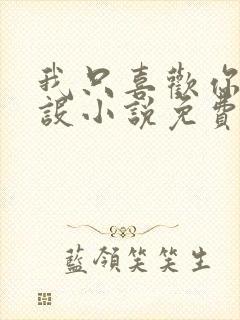 我只喜歡你
設小說免費
藍領笑笑生